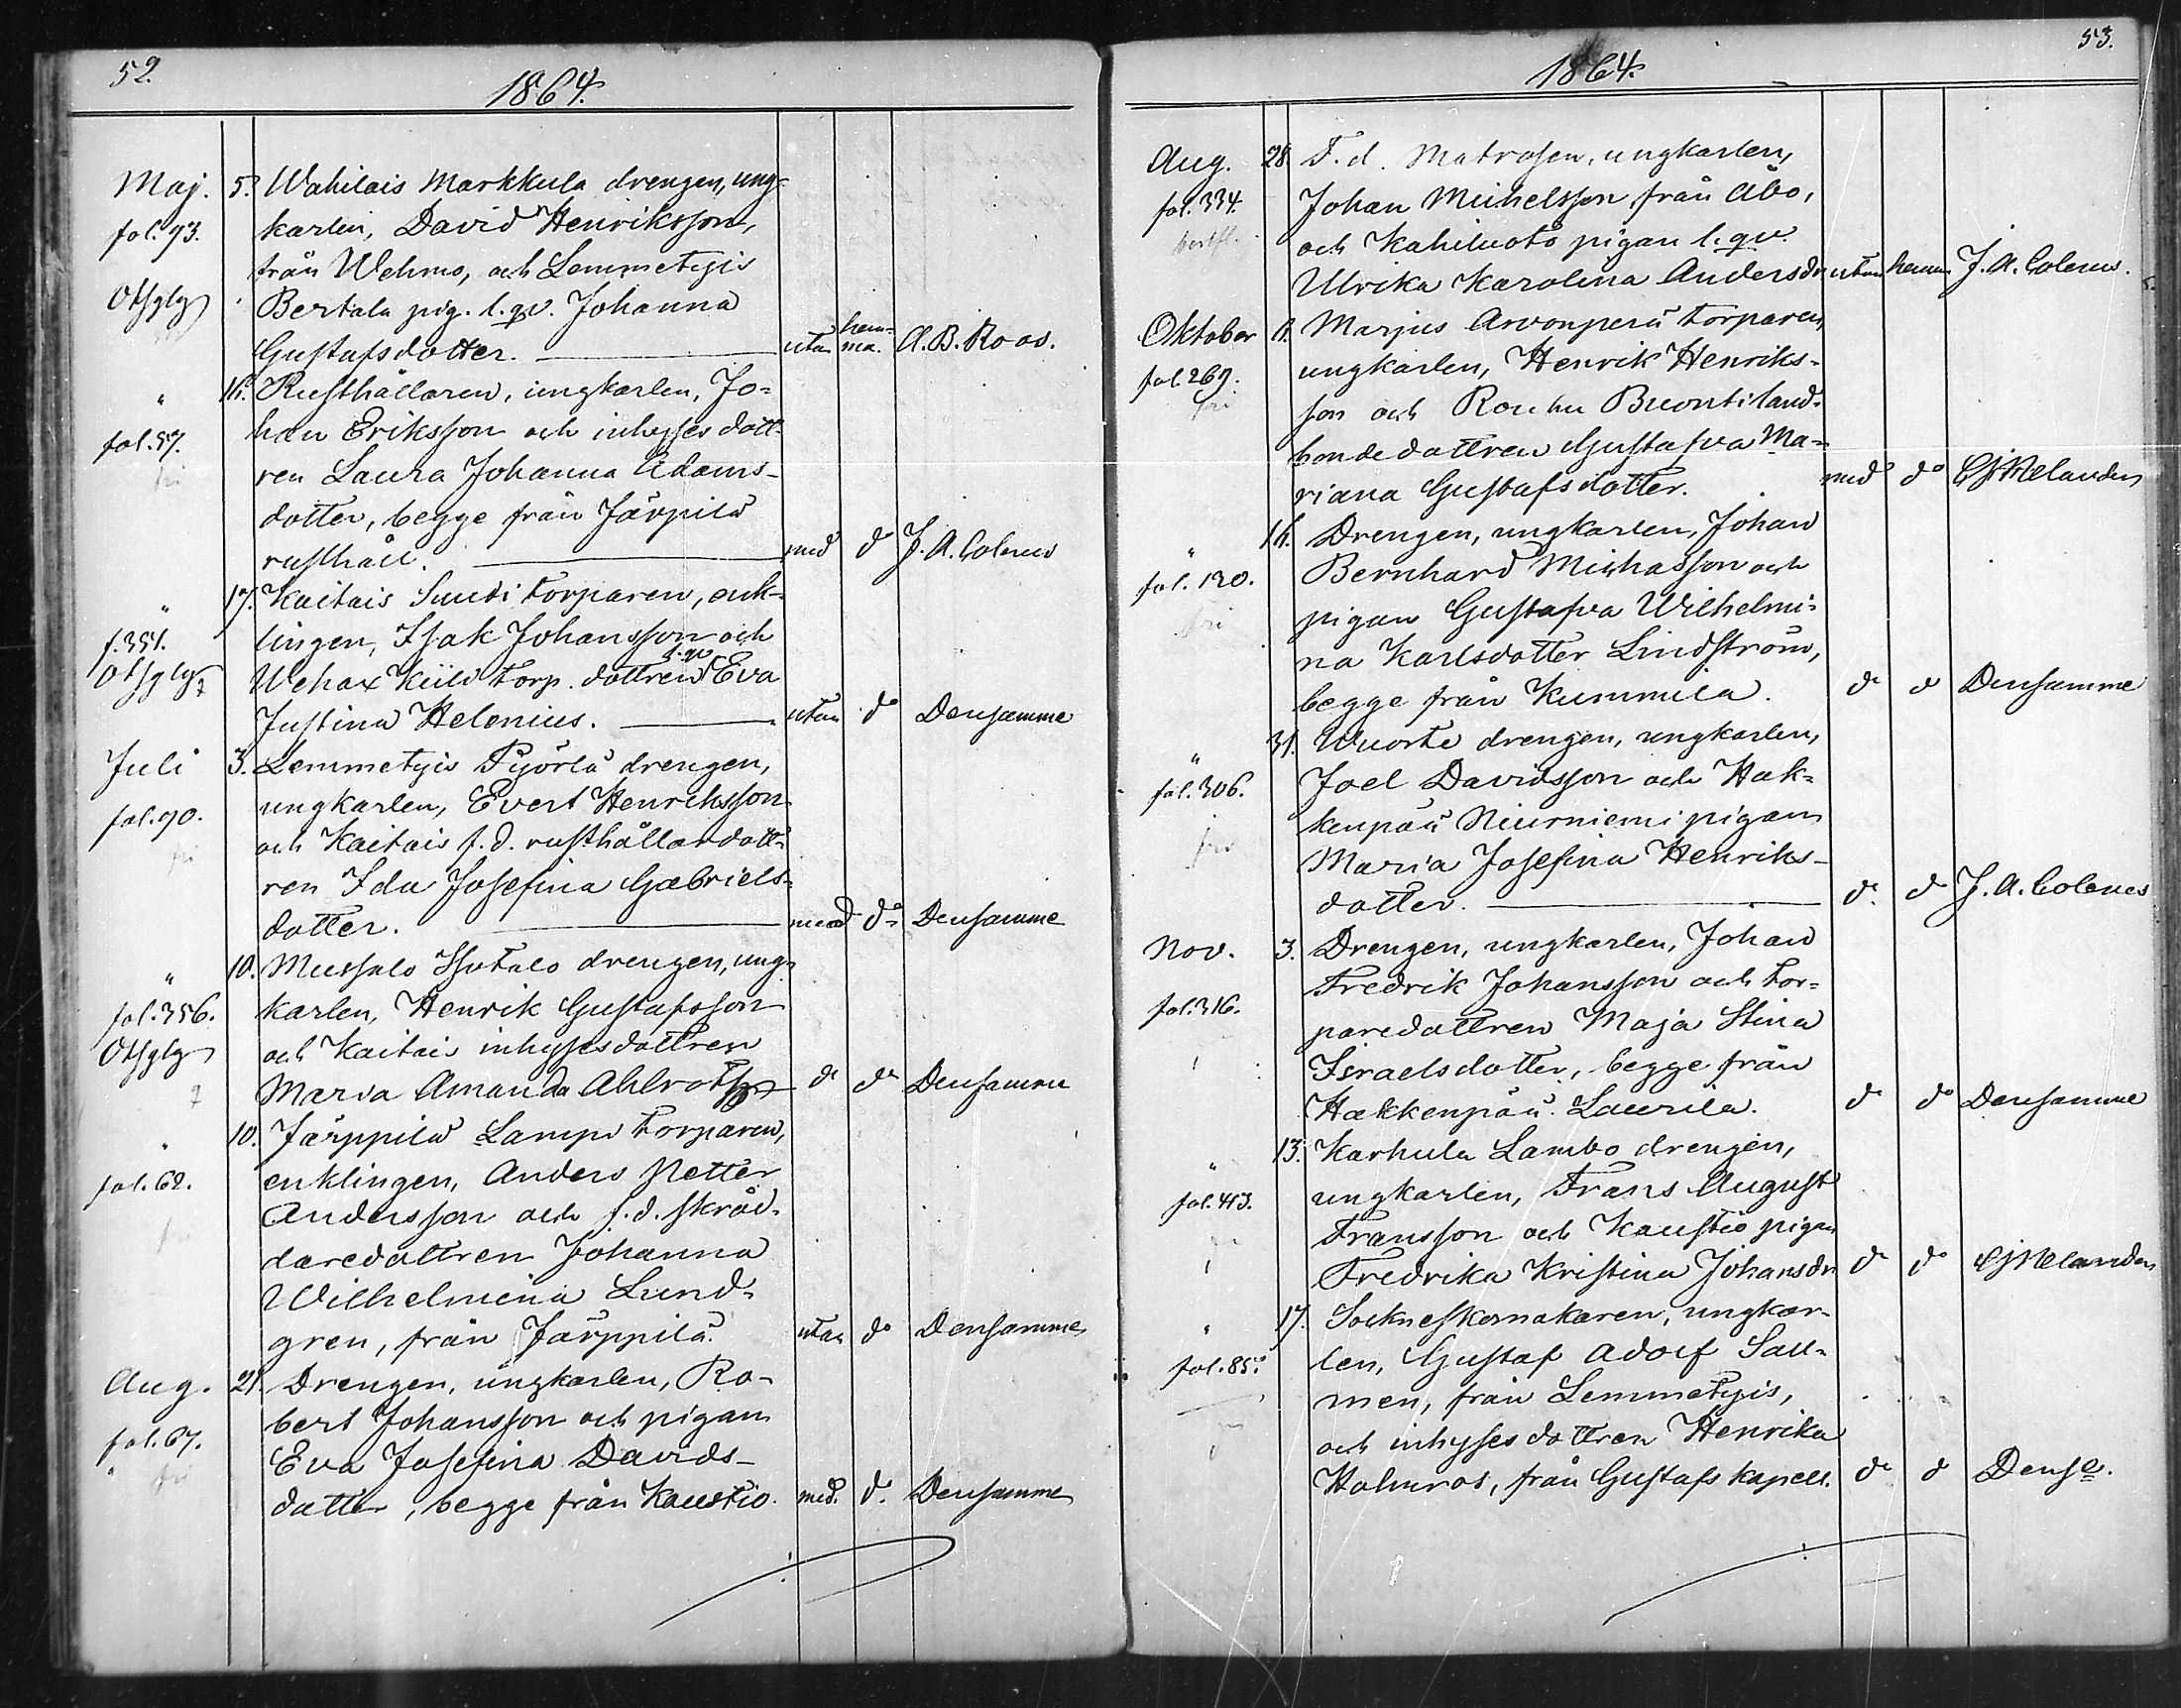 52.
1864.
Maj. 5. Wahilais Markkula drengen, ung-
fol. 93. karlen, David Henriksson,
från Wehmo, och Lemmetyis
Bertala pig. l. qv. Johanna
Gustafsdotter. utan hem-ma. A. B. Roos.
" 16. Rusthållaren, ungkarlen, Jo-
fol. 57. han Eriksson och inhyses dott-
fri ren Laura Johanna Adams-
dotter, begge från Järpilä
rusthåll. med do J. A. Colerus
" 17. Kaitais Suudi torparen, enk-
f. 351. lingen, Isak Johansson och
Wehax Kiila torp. dottren l. qv. Eva
Justina Helenius. utan do Densamme
Juli 3. Lemmetyis Pyörlä drengen,
fol. 90. ungkarlen, Evert Henriksson
och Kaitais f. d. rusthållaredott-
fri ren Ida Josefina Gabriels-
dotter. med do Densamme
" 10. Mussalo Isotalo drengen, ung-
fol. 356. karlen, Henrik Gustafsson
och Kaitais inhysesdottren
Maria Amanda Ahlroth do do Densamme
" 10. Järppilä Lampi torparen,
fol. 62. enklingen, Anders Petter
Andersson och f. d. skräd-
daredottren Johanna
Wilhelmina Lund-
gren, från Järppilä. utan do Densamme
Aug. 21. Drengen, ungkarlen, Ro-
bert Johansson och pigan
fol. 67. Eva Josefina Davids-
dotter, begge från Kaustio. med. do. Densamme
53.
1864.
Aug. 28. F. d. Matrosen, ungkarlen,
fol. 334. Johan Michelsson från Åbo,
och Kahiluoto pigan l. qv.
Ulrika Karolina Andersdr utan hemma J. A. Colerus.
Oktober Marjus Arvonperä torparen,
fol. 267. ungkarlen, Henrik Henriks-
fri son och Rouhu land-
bondedottren Gustafva Ma-
riana Gustafsdotter. med do Melander
" 16. Drengen, ungkarlen, Johan
fol. 120. Bernhard Michasson och
fri pigan Gustafva Wilhelmi-
na Karlsdotter Lindström,
begge från Kummila. do do Densamme
" 31. Wuorte drengen, ungkarlen,
fol. 306. Joel Davidsson och Hak-
kenpää Niurniemi pigan
Maria Josefina Henriks-
dotter. do. do J. A. Colerus
Nov. 3. Drengen, ungkarlen, Johan
Fredrik Johansson och tor-
fol. 316. paredottren Maja Stina
Israelsdotter, begge från
Hakkenpää Laurila. do do Densamme
" 13. Karhula Lambo drengen,
fol. 413. ungkarlen, Frans August
Fransson och Kaustio pigan
Fredrika Kristina Johansdr do do Melander
" 17. Sockneskomakaren, ungkar-
fol. 85. len, Gustaf Adolf Sall-
men, från Lemmetyis,
och inhysesdottren Henrika
Holmros, från Gustafs kapell. do do Dense.